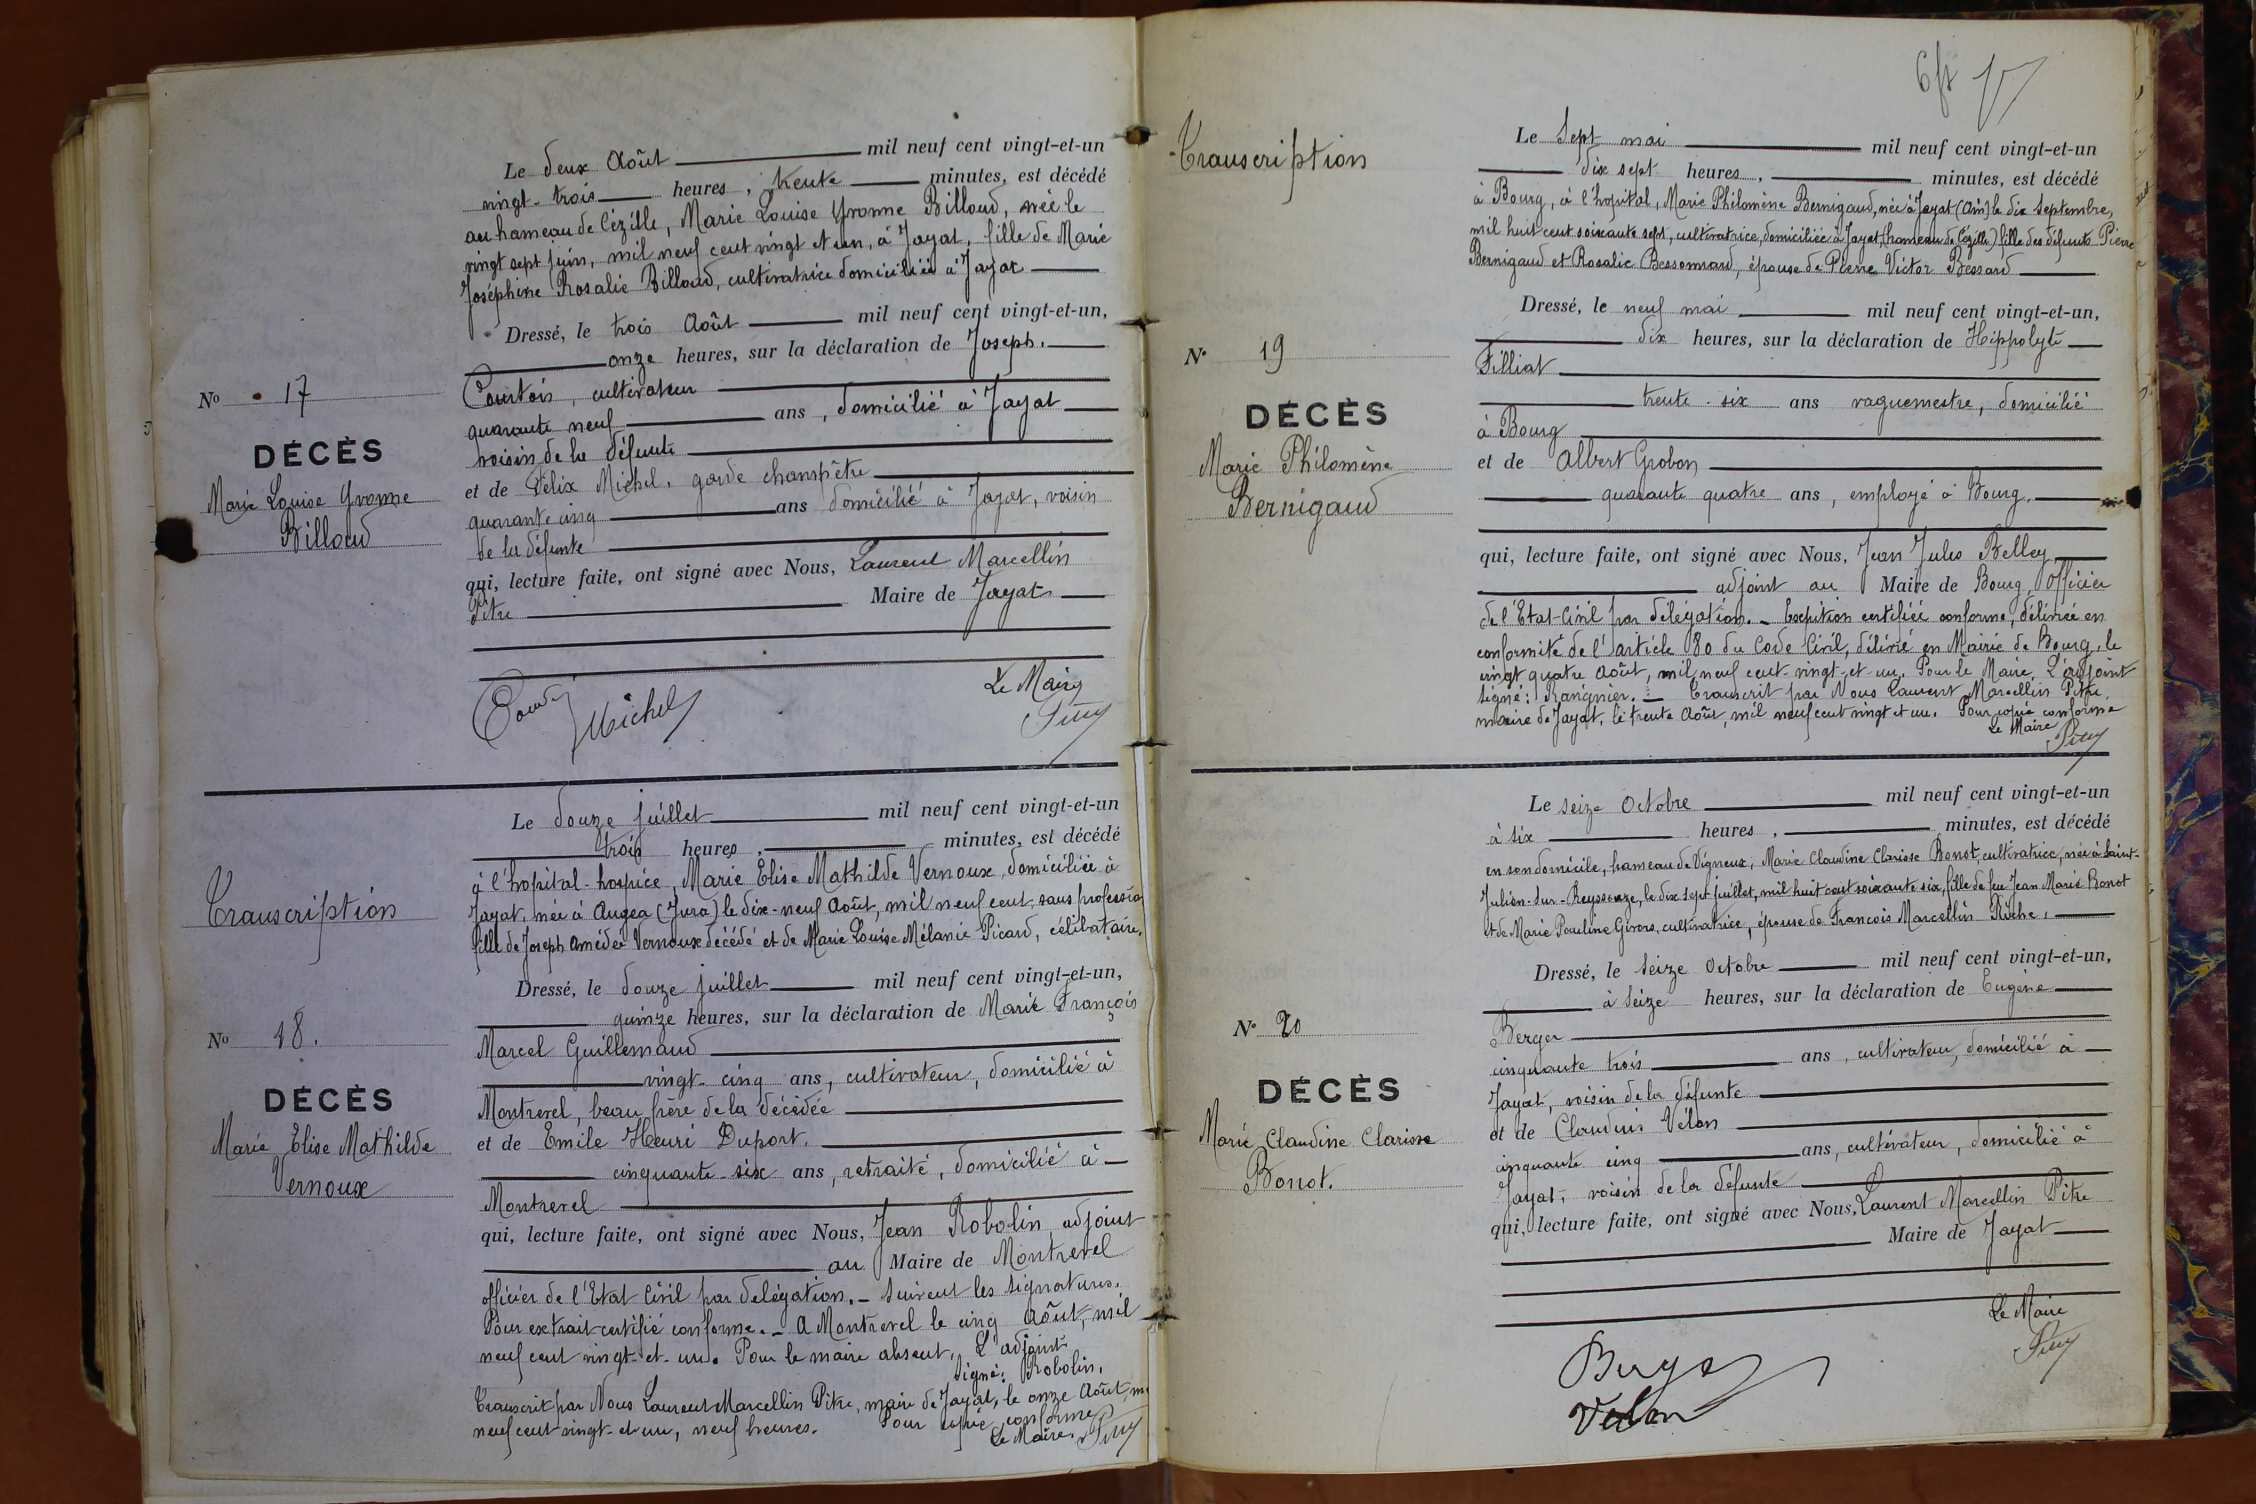 Le deux Août mil neuf cent vingt-et-un
vingt-trois heures, trente minutes, est décédé
au hameau de Cézille, Marie Louise Yvonne Billoud, née le
vingt sept juin, mil neuf cent vingt et un, à Jayat, fille de Marie
Joséphine Rosalie Billoud, cultivatrice domiciliée à Jayat
Dressé, le trois Août mil neuf cent vingt-et-un,
onze heures, sur la déclaration de Joseph
No 17
Courtois, cultivateur
quarante neuf ans, domicilié à Jayat
DÉCÈS
voisin de la défunte
et de Félix Michel, garde champêtre
Marie Louise Yvonne
quarante cinq ans domicilié à Jayat, voisin
Billoud
de la défunte
qui, lecture faite, ont signé avec Nous, Laurent Marcellin
Pitre Maire de Jayat
Le Maire
Michel
Le douze juillet mil neuf cent vingt-et-un
trois heures, minutes, est décédé
à l'hopital-hospice, Marie Elise Mathilde Vernoux, domiciliée à
Transcription
Jayat, née à Augea (Jura) le dix-neuf Août, mil neuf cent, sans profession
fille de Joseph Amédée Vernoux décédé et de Marie Louise Mélanie Picard, célibataire.
Dressé, le douze juillet mil neuf cent vingt-et-un,
quinze heures, sur la déclaration de Marie François
No 18.
Marcel Guillemaud
vingt-cinq ans, cultivateur, domicilié à
DÉCÈS
Montrevel, beau frère de la décédée
Marie Elise Mathilde
et de Emile Henri Duport.
cinquante-six ans, retraité, domicilié à
Vernoux
Montrevel
qui, lecture faite, ont signé avec Nous, Jean Robolin adjoint
au Maire de Montrevel
officier de l'Etat Civil par délégation. - Suivent les signatures.
Pour extrait certifié conforme. - A Montrevel le cinq Août, mil
neuf cent vingt-et-un. Pour le maire absent, L'adjoint
Signé: Robolin.
Transcrit par Nous Laurent Marcellin Pitre, maire de Jayat, le onze Août, m
neuf cent vingt-et un, neuf heures. Pour copie conforme
Le Maire. Pitre
6
Transcription
Le Sept mai mil neuf cent vingt-et-un
dix sept heures, minutes, est décédé
à Bourg, à l'hopital, Marie Philomène Bernigaud, née à Jayat (Ain) le dix Septembre,
mil huit cent soixante sept, cultivatrice, domiciliée à Jayat, (hameau de Cézille) fille des défunts Pierre
Bernigaud et Rosalie Bessonnard, épouse de Pierre Victor Bessard
Dressé, le neuf mai mil neuf cent vingt-et-un,
dix heures, sur la déclaration de Hippolyte
No 19
Filliat
trente-six ans vaguemestre, domicilié
DÉCÈS
à Bourg
Marie Philomène
et de Albert Grobon
Bernigaud
quarante quatre ans, employé à Bourg.
qui, lecture faite, ont signé avec Nous, Jean Jules Belley
adjoint au Maire de Bourg, Officier
de l'Etat-Civil par délégation. - Expédition certifiée conforme, délivrée en
conformité de l'article 80 du Code Civil, délivré en Mairie de Bourg, le
vingt quatre Août, mil neuf cent-vingt-et-un. Pour le Maire, L'adjoint
signé: - Transcrit par Nous Laurent Marcellin Pitre,
maire de Jayat, le trente Août, mil neuf cent vingt et un. Pour copie conforme
Le Maire
Pitre
Le seize Octobre mil neuf cent vingt-et-un
à six heures, minutes, est décédé
en son domicile, hameau de Vigneux, Marie Claudine Clarisse Bonot, cultivatrice, née à Saint-
Julien-sur-Reyssouze, le dix sept juillet, mil huit cent soixante six, fille de feu Jean Marie Bonot
et de Marie Pauline Girors, cultivatrice, épouse de François Marcellin Riche,
Dressé, le seize Octobre mil neuf cent vingt-et-un,
à seize heures, sur la déclaration de Eugène
No 20
Berger
cinquante trois ans, cultivateur, domicilié à
DÉCÈS
Jayat, voisin de la défunte
Marie Claudine Clarisse
et de Claudius Vélon
Bonot.
cinquante cinq ans, cultivateur, domicilié à
Jayat, voisin de la défunte
qui, lecture faite, ont signé avec Nous, Laurent Marcellin Pitre
Maire de Jayat
Le Maire
Pitre
Berger
Velon